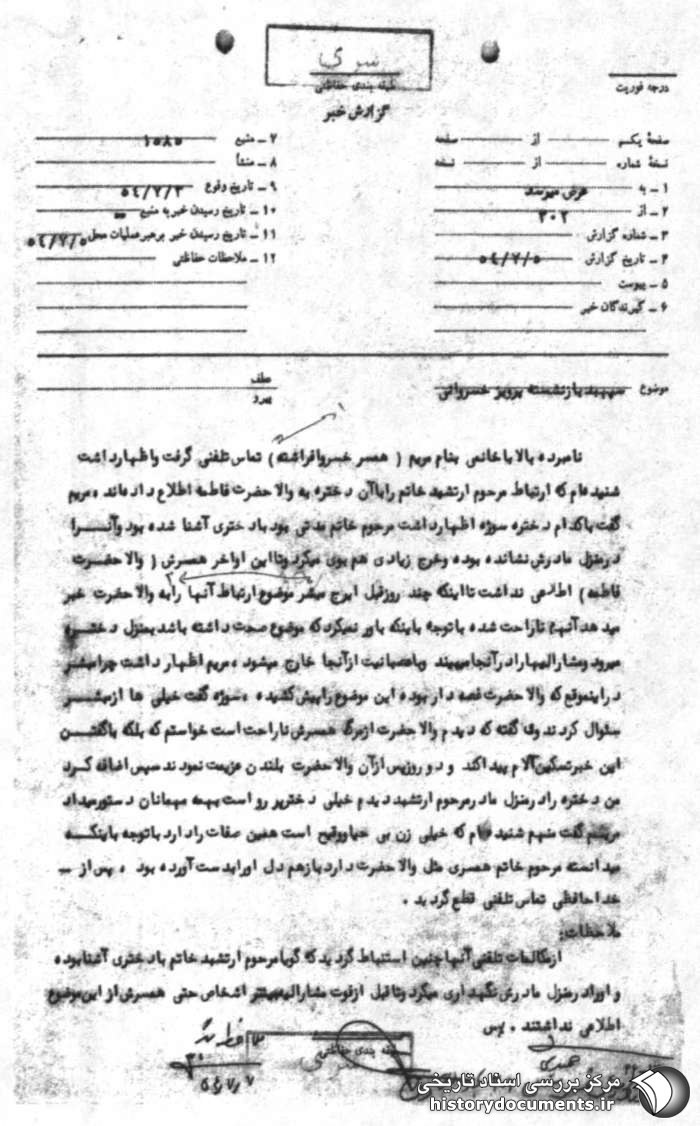 سری
طبقه بندی حفاظتی
گزارش خبر
درجه فوریت
صفحهٔ یکم از صفحه
نسخهٔ شماره از نسخه
۱ ــ به عرض میرسد
۲ ــ از ۳۰۲
۳ ــ شماره گزارش
۴ ــ تاریخ گزارش ۵٤/۷/۵
۵ ــ پیوست
۶ ــ گیرندگان خبر
۷ ــ منبع ۱۰۸۵
۸ ــ منشأ
۹ ــ تاریخ وقوع ۵٤/۷/۳
۱۰ ــ تاریخ رسیدن خبر به منبع
۱۱ ــ تاریخ رسیدن خبر برهبر عملیات محل ۵٤/۷/۵
۱۲ ــ ملاحظات حفاظتی
موضوع سپهبد بازنشسته پرویز خسروانی
عطف
پیرو
نامبرده بالا با خانمی بنام مریم ( همسر خسرو افراشته ) تماس تلفنی گرفت و اظهار داشت
شنیده‌ام که ارتباط مرحوم ارتشبد خاتم را با آن دختره به والاحضرت فاطمه اطلاع داده‌اند ، مریم
گفت باکدام دختره سوژه اظهار داشت مرحوم خاتم مدتی بود با دختری آشنا شده بود و آنرا
در منزل مادرش نشانده بوده و خرج زیادی هم بوی میکرد و تا این اواخر همسرش ( والاحضرت
فاطمه ) اطلاعی نداشت تا اینکه چند روز قبل ایرج مبشر موضوع ارتباط آنها را به والاحضرت خبر
میدهد آنهم ناراحت شده با توجه باینکه باور نمیکرد که موضوع صحت داشته باشد بمنزل دختره
میرود و مشارالیها را در آنجا میبیند و با عصبانیت از آنجا خارج میشود ، مریم اظهار داشت چرا مبشر
در اینموقع که والاحضرت غصه دار بوده این موضوع را پیش کشیده ، سوژه گفت خیلی ها از مبشر
سئوال کردند وی گفته که دیدم والاحضرت از مرگ همسرش ناراحت است خواستم که بلکه با گفتن
این خبر تسکین آلام پیدا کند و دو روز پس از آن والاحضرت بلندن عزیمت نمودند سپس اضافه کرد
من دختره را در منزل مادر مرحوم ارتشبد دیدم خیلی دختر پررو است بهمه مهمانان دستور میداد
مریم گفت منهم شنیده‌ام که خیلی زن بی حیا و وقیح است همین صفات را دارد با توجه باینکه
میدانسته مرحوم خاتم همسری مثل والاحضرت دارد بازهم دل او را بدست آورده بود ، پس از ــ
خداحافظی تماس تلفنی قطع گردید .
ملاحظات:
از مکالمات تلفنی آنها چنین استنباط گردید که گویا مرحوم ارتشبد خاتم با دختری آشنا بوده
و او را در منزل مادرش نگهداری میکرد و تا قبل از فوت مشارالیه بیشتر اشخاص حتی همسرش از این موضوع
اطلاعی نداشتند . پس
طبقه بندی حفاظتی
مرکز بررسی اسناد تاریخی
historydocuments.ir